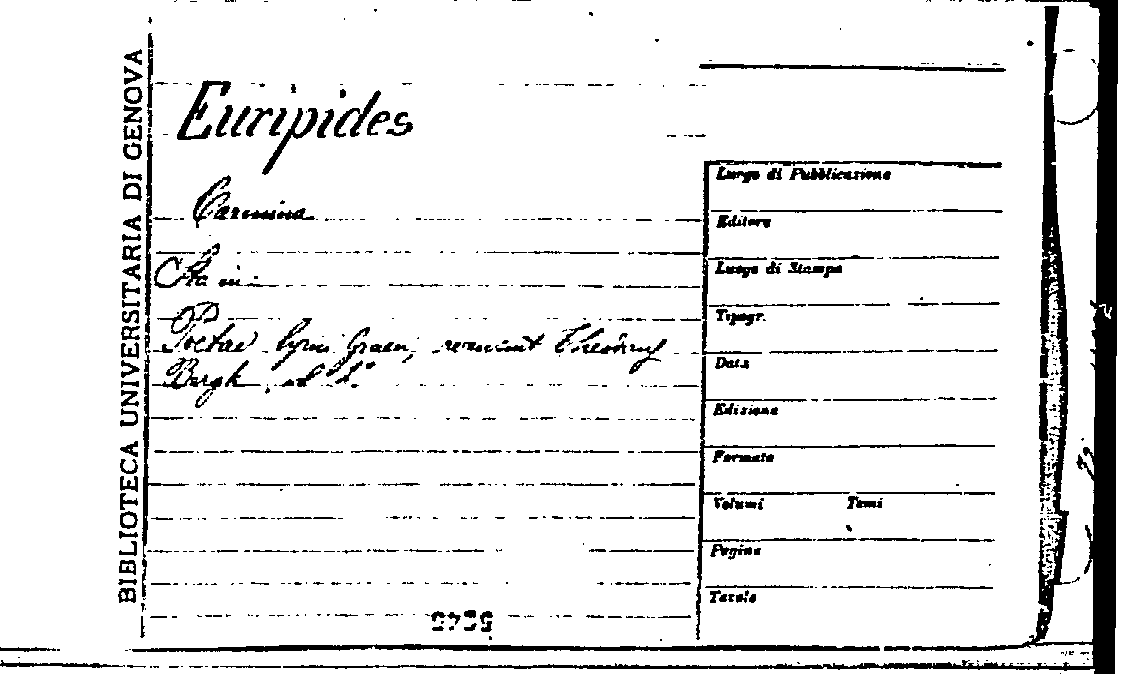 BIBLIOTECA UNIVERSITARIA DI GENOVA
Euripides
Carmina
Sta in:
Poetae lyrici graeci, recensuit Theodorus
Bergk, vol. 2.°
Luogo di Pubblicazione
Editore
Luogo di Stampa
Tipogr.
Data
Edizione
Formato
Volumi Tomi
Pagine
Tavole